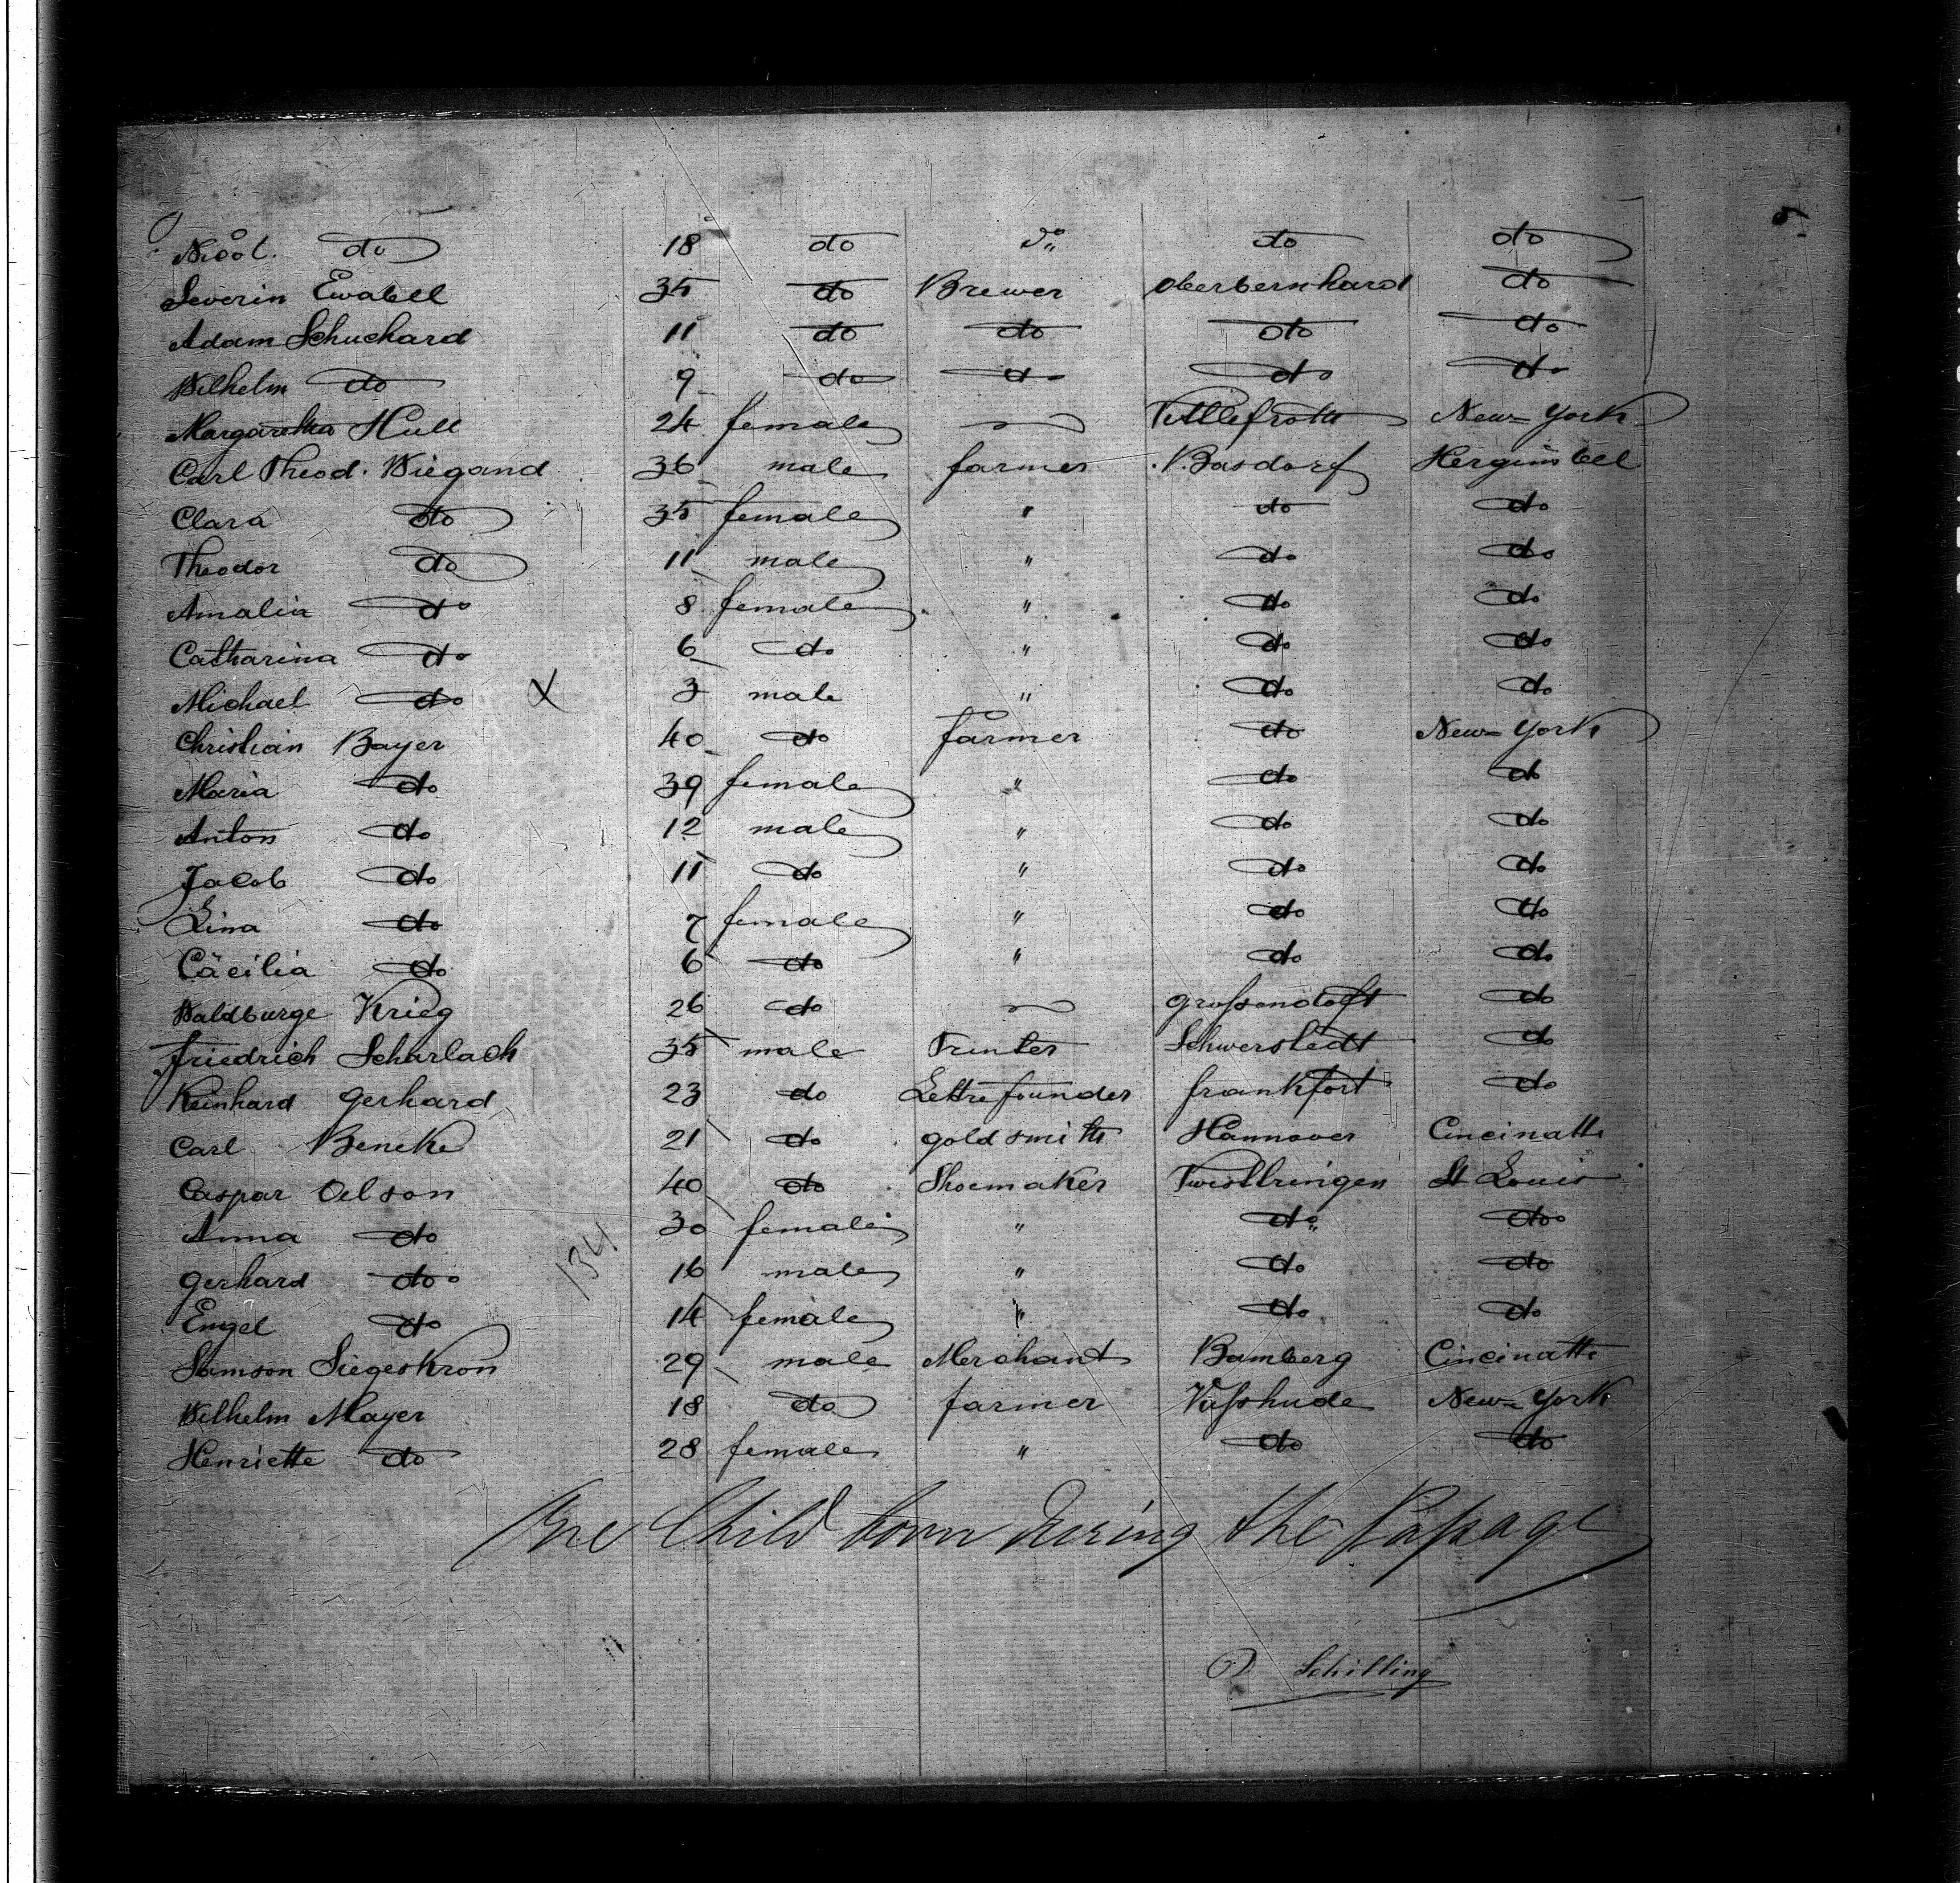 5
Nicol. do 18 do do do do
Severin Ewabell 35 do Brewer Oberbernhard do
Adam Schuchard 11 do do do do
Wilhelm do 9 do do do do
Margaretha Hull 24 female New-York
Carl Theod. Wiegand 36 male farmer Basdorf
Clara do 35 female " do do
Theodor do 11 male " do do
Amalia do 8 female " do do
Catharina do 6 do " do do
Michael do X 3 male " do do
Christian Bayer 40 do farmer do New-York
Maria do 39 female " do do
Anton do 12 male " do do
Jacob do 11 do " do do
Lina do 7 female " do do
Cäcilia do 6 do " do do
Waldburge Krieg 26 do do
Friedrich Scharlach 35 male Printer Schwerstedt do
Reinhard Gerhard 23 do Lettrefounder frankfort do
Carl Beneke 21 do goldsmith Hannover Cincinatti
Caspar Oelson 40 do Shoemaker Twistringen St Louis
Anna do 30 female " do do
Gerhard do 16 male " do do
Engel do 14 female " do do
134
Samson Siegeskron 29 male Merchant Bamberg Cincinatti
Wilhelm Mayer 18 do farmer New-York
Henriette do 28 female " do do
One Child born during the Passage
D Schilling